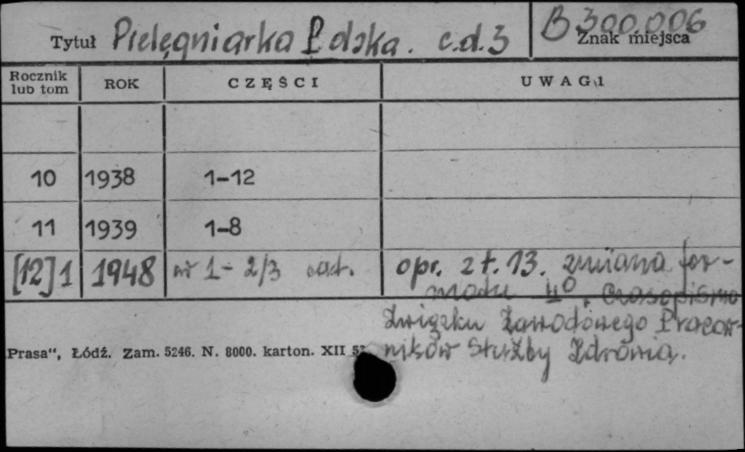 Tytuł Pielęgniarka Polska. c.d.3 B 300.006
Znak miejsca
Rocznik lub tom ROK CZĘŚCI UWAGI
10 1938 1-12
11 1939 1-8
[12]1 1948 nr 1-2/3 opr. z t. 13. zmiana for-
matu 4⁰. Czasopismo
Związku Zawodowego Pracow-
Prasa", Łódź. Zam. 5246. N. 8000. karton. XII ników Służby Zdrowia.